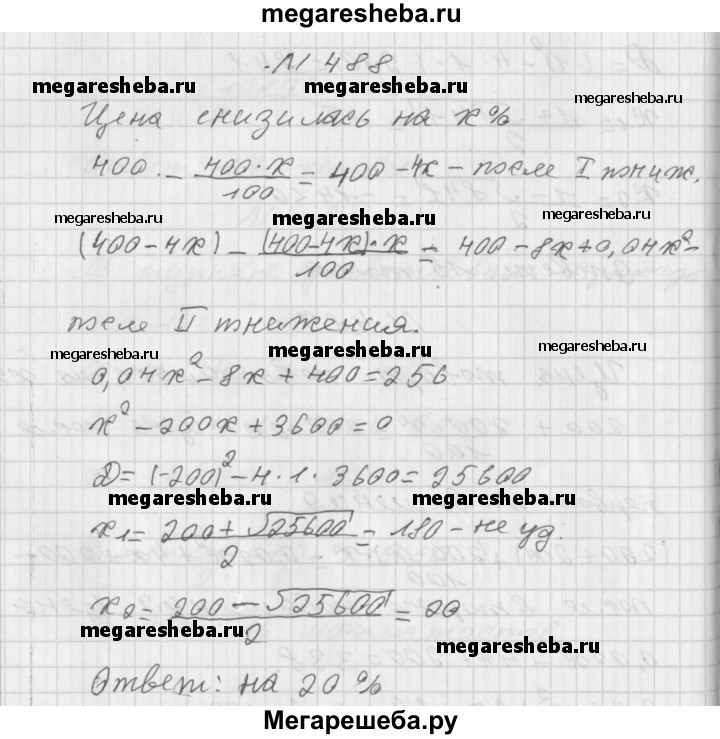 megaresheba.ru
№ 488
megaresheba.ru megaresheba.ru megaresheba.ru
Цена снизилась на x%
400 - 400·x/100 = 400 - 4x - после I пониж.
megaresheba.ru megaresheba.ru megaresheba.ru
(400-4x) - (400-4x)·x/100 = 400-8x+0,04x²-
после II понижения.
megaresheba.ru megaresheba.ru megaresheba.ru
0,04x²-8x+400=256
x²-200x+3600=0
D=(-200)²-4·1·3600=25600
megaresheba.ru megaresheba.ru
x₁=(200+√25600)/2=180-не уд.
x₂=(200-√25600)/2=20
megaresheba.ru megaresheba.ru
Ответ: на 20%
Мегарешеба.ру